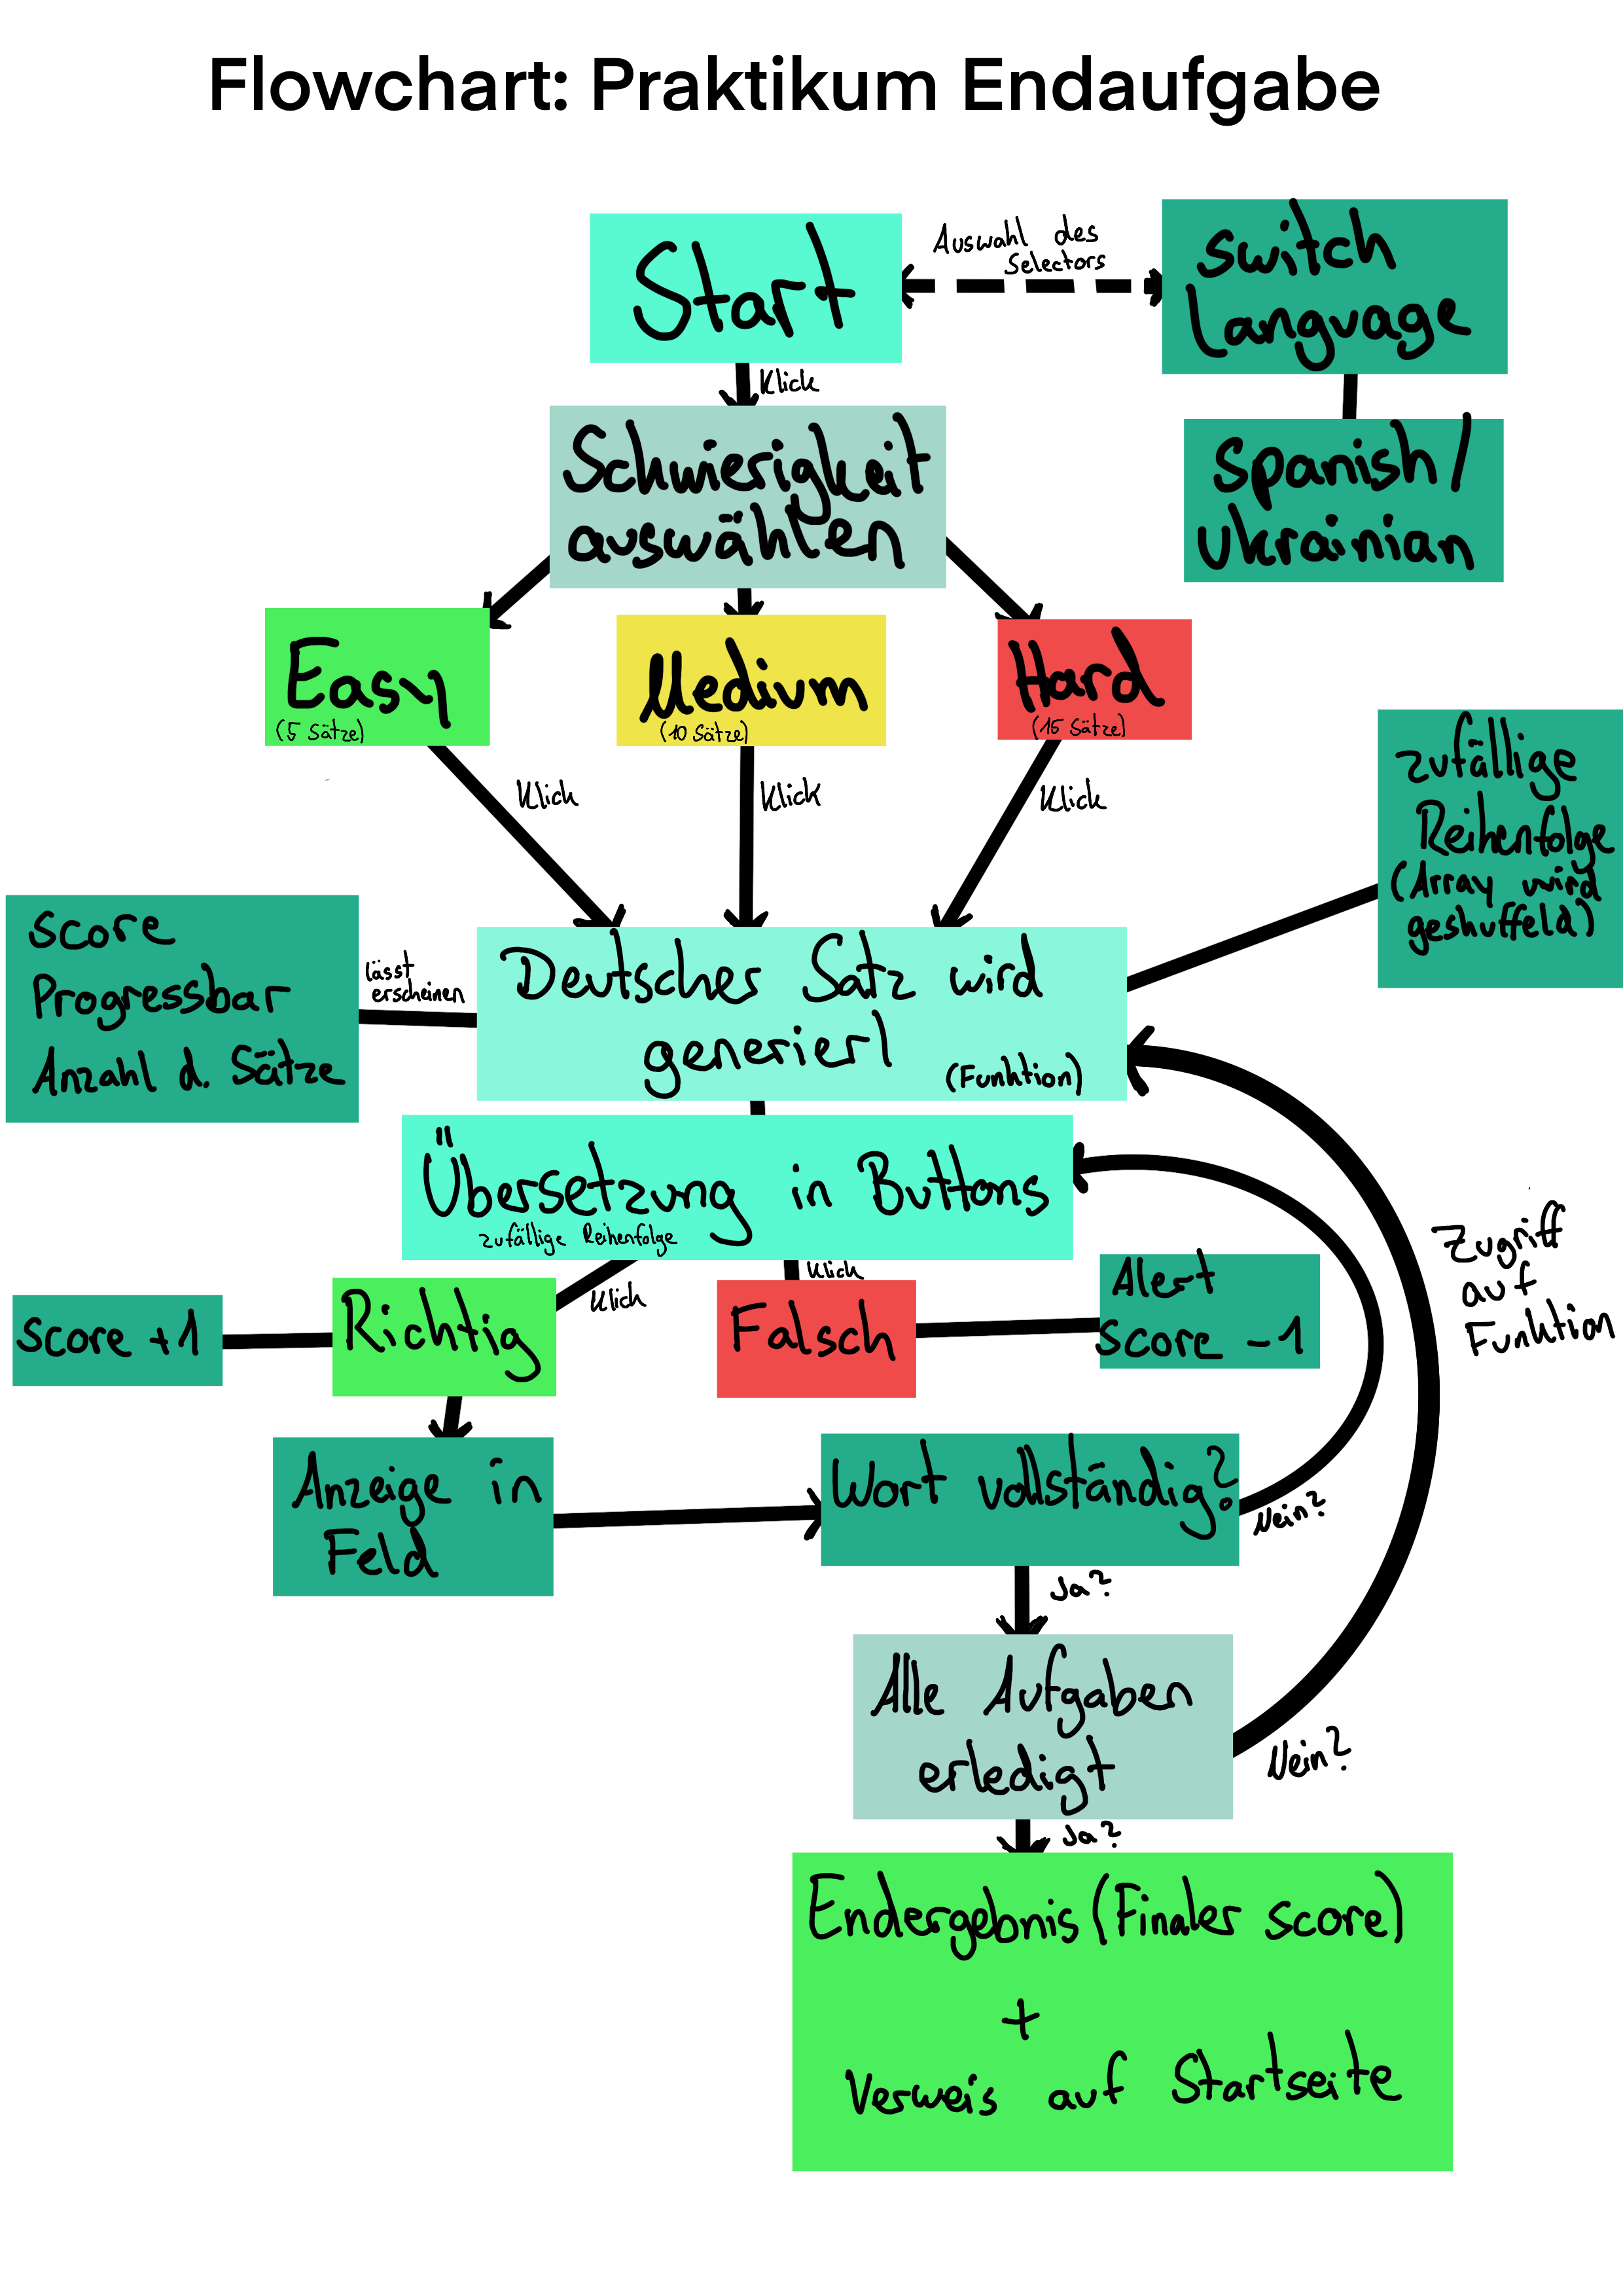 Flowchart: Praktikum Endaufgabe
Start
Auswahl des
Selectors
switch
Language
Klick
Schwierigkeit
auswählen
spanish/
ukrainian
Easy
(5 Sätze)
Medium
(10 Sätze)
Hard
(15 Sätze)
Klick
Klick
Klick
zufällige
Reihenfolge
(Array wird
geshuffeld)
score
Progressbar
Anzahl d. Sätze
lässt
erscheinen
Deutscher Satz wird
generiert
(Funktion)
Übersetzung in Buttons
zufällige Reihenfolge
Klick
Klick
score +1
Richtig
Falsch
Alert
score -1
Zugriff
auf
Funktion
Anzeige in
Feld
Wort vollständig?
Nein?
Ja?
Alle Aufgaben
erledigt
Nein?
Ja?
Endergebnis (Finaler score)
+
Verweis auf Startseite